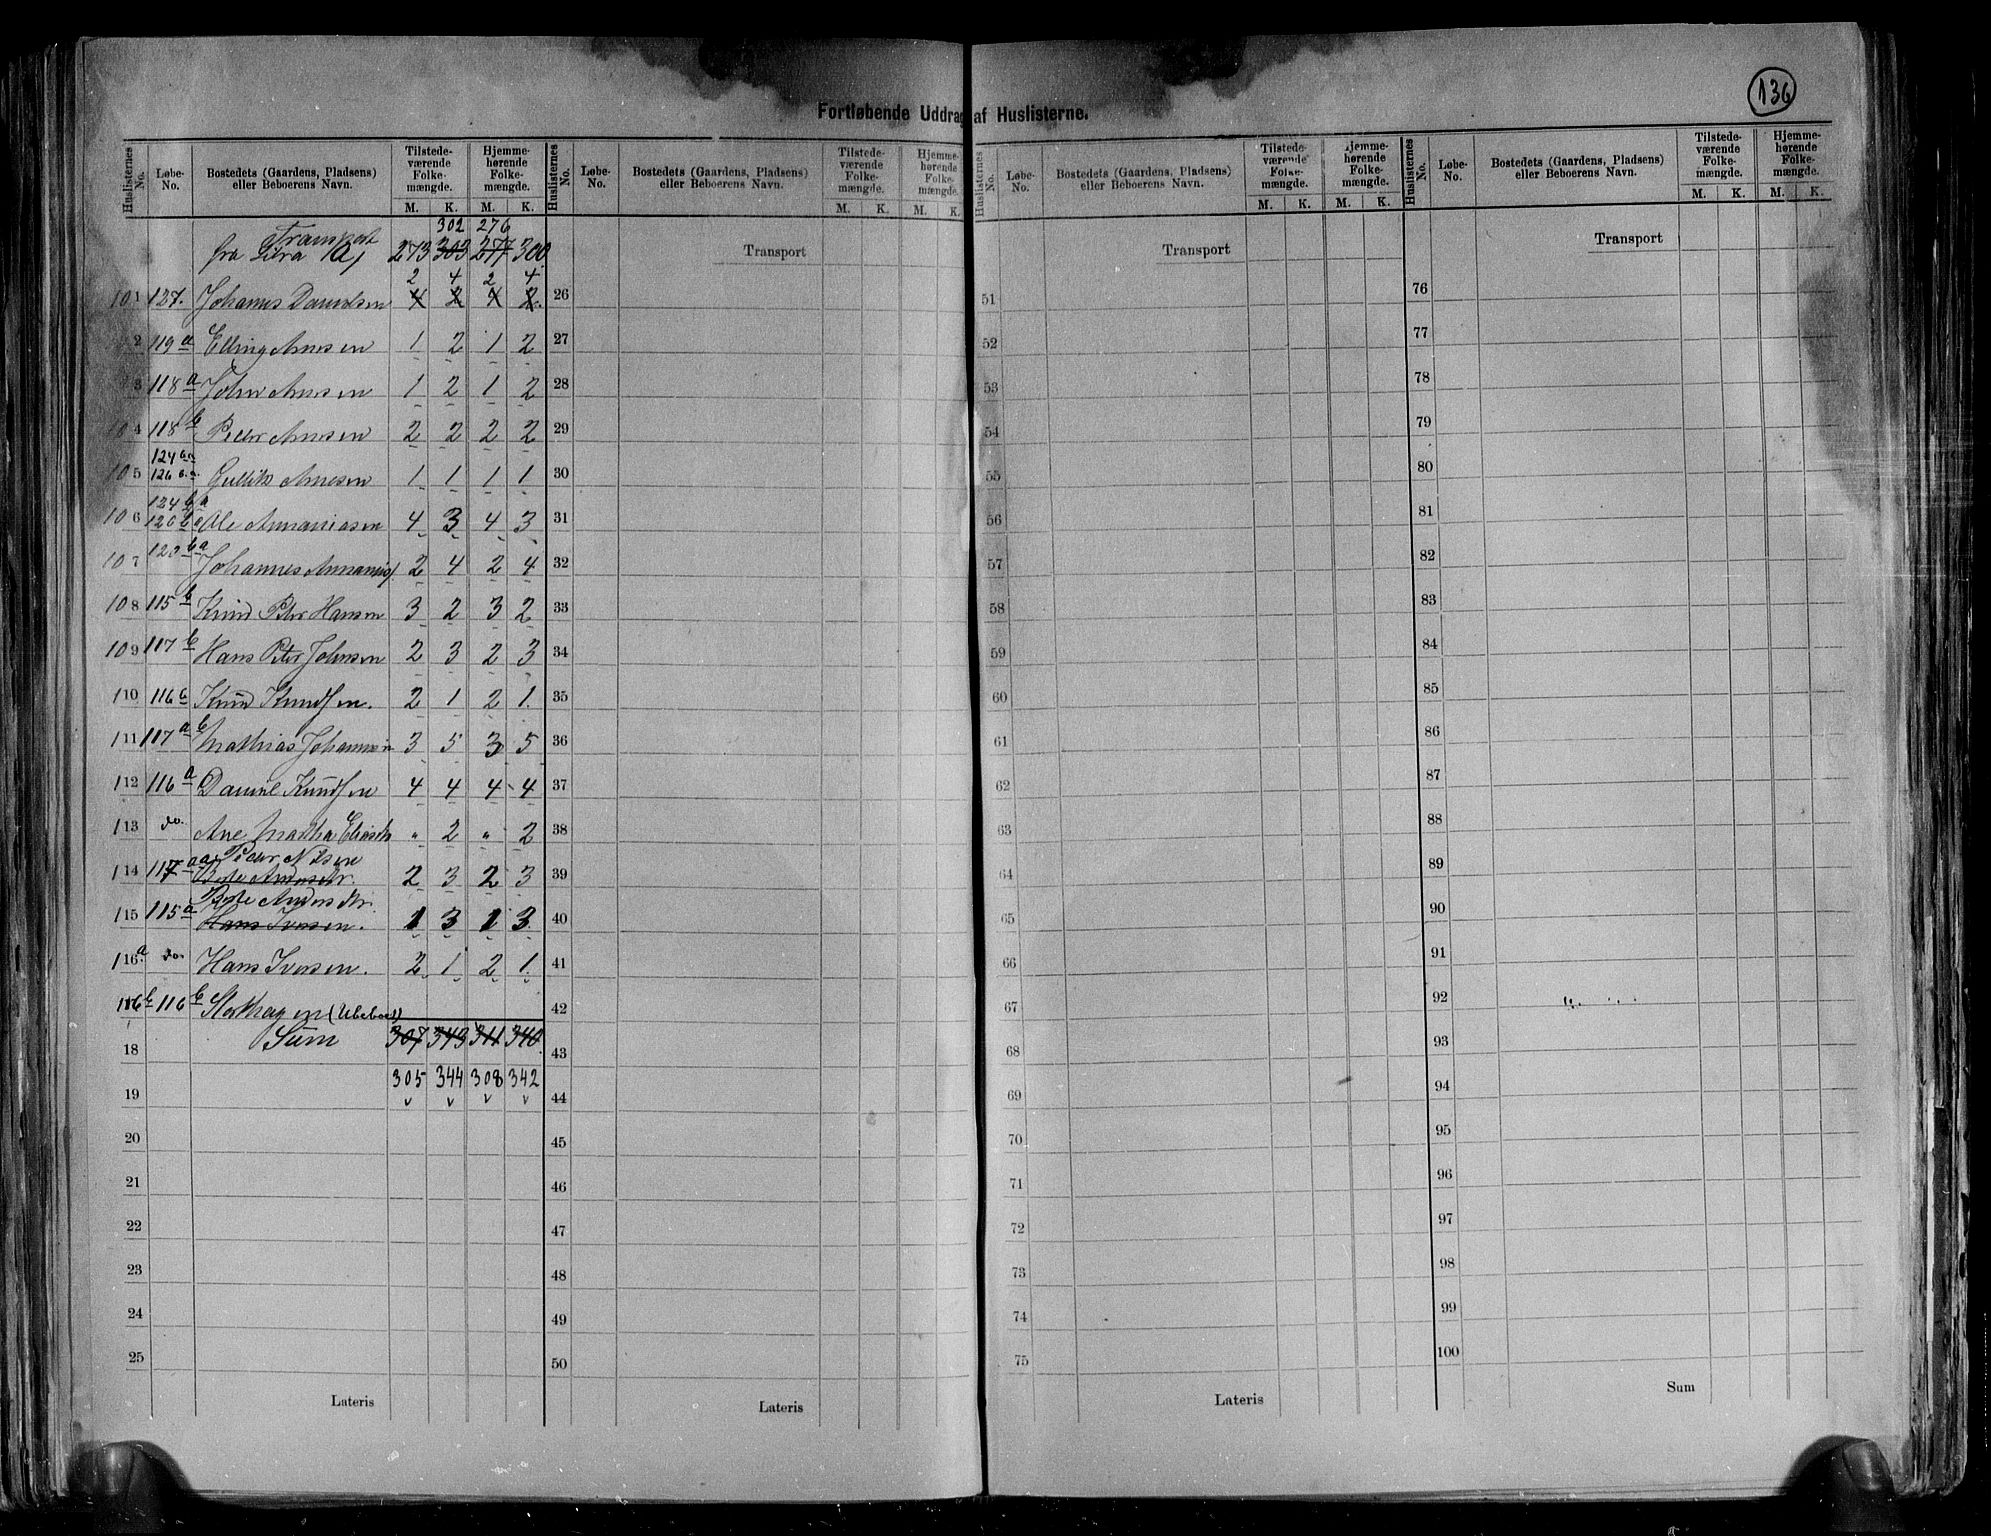 136
Fortløbende Uddrag af Huslisterne.
Huslisternes No. Løbe-No. Bostedets (Gaardens, Pladsens) eller Beboerens Navn. Tilstede-værende Folke-mængde. Hjemme-hørende Folke-mængde.
M. K. M. K.
302 276
Transport
fra Litra 1a, 273 303 277 300
2 4 2 4
101 127. Johannes Danielsen 4 2 4 2
2 119a Elling Arnesen 1 2 1 2
3 118a John Arnesen 1 2 1 2
104 118b Peder Arnesen 2 2 2 2
124
105 126 Gullik Arnesen 1 1 1 1
124 b a
106 120 b Ole Annaniasen 4 3 4 3
107 120 b a Johannes Annanias 2 4 2 4
108 115b Knud Peter Hansen 3 2 3 2
109 117b Hans Peter Johnsen 2 3 2 3
110 116b Knud Knudsen. 2 1 2 1.
111 117a b Mathias Johannesen 3 5 3 5
112 116a Daniel Knudsen 4 4 4 4
113 do. Ane Martha Eliasdr " 2 " 2
Peder Nilsen
114 117 aa Berte Andersdr. 2 3 2 3
Berte Andersdtr.
115 115a Hans Iversen. 1 3 1 3.
116a. do. Hans Iversen. 2 1 2 1.
116b 116b Storhagen (Ubeboet)
18 Sum 307 343 311 340
305 344 308 342
19 v v v v
20
21
22
23
24
25
Lateris
Huslisternes No. Løbe-No. Bostedets (Gaardens, Pladsens) eller Beboerens Navn. Tilstede-værende Folke-mængde. Hjemme-hørende Folke-mængde.
M. K. M. K.
Transport
26
27
28
29
30
31
32
33
34
35
36
37
38
39
40
41
42
43
44
45
46
47
48
49
50
Lateris
Huslisternes No. Løbe-No. Bostedets (Gaardens, Pladsens) eller Beboerens Navn. Tilstede-værende Folke-mængde. Hjemme-hørende Folke-mængde.
M. K. M. K.
Transport
51
52
53
54
55
56
57
58
59
60
61
62
63
64
65
66
67
68
69
70
71
72
73
74
75
Lateris
Huslisternes No. Løbe-No. Bostedets (Gaardens, Pladsens) eller Beboerens Navn. Tilstede-værende Folke-mængde. Hjemme-hørende Folke-mængde.
M. K. M. K.
Transport
76
77
78
79
80
81
82
83
84
85
86
87
88
89
90
91
92
93
94
95
96
97
98
99
100
Sum